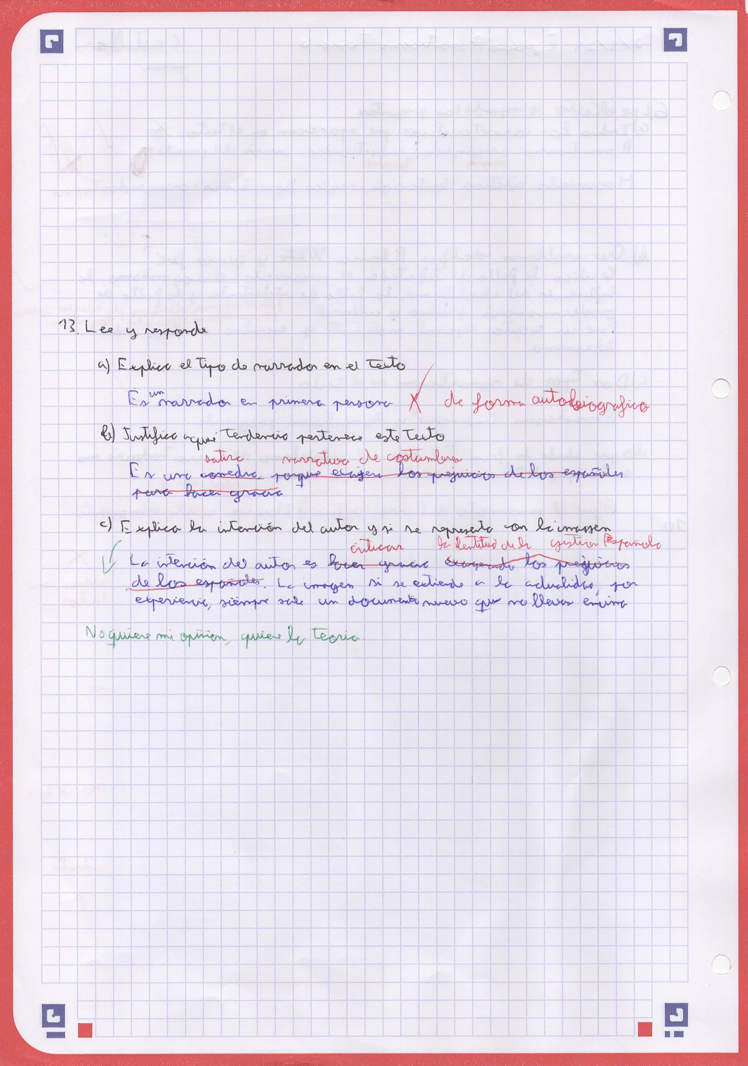 13. Lee y responde
a) Explica el tipo de narrador en el texto
Es un narrador en primera persona X de forma autobiografico
b) Justifica a qué tendencia pertenece este texto
satira narrativa de costumbres
Es una comedia, porque exagera los prejuicios de los españoles
para hacer gracia
c) Explica la intención del autor y si se representa con la imagen
criticar la lentitud de la gestion Española
La intención del autor es hacer gracia exagerando los prejuicios
de los españoles. La imagen si se extiende a la actualidad, por
experiencia, siempre sale un documento nuevo que no llevas encima
No quiere mi opinion, quiere la teoria